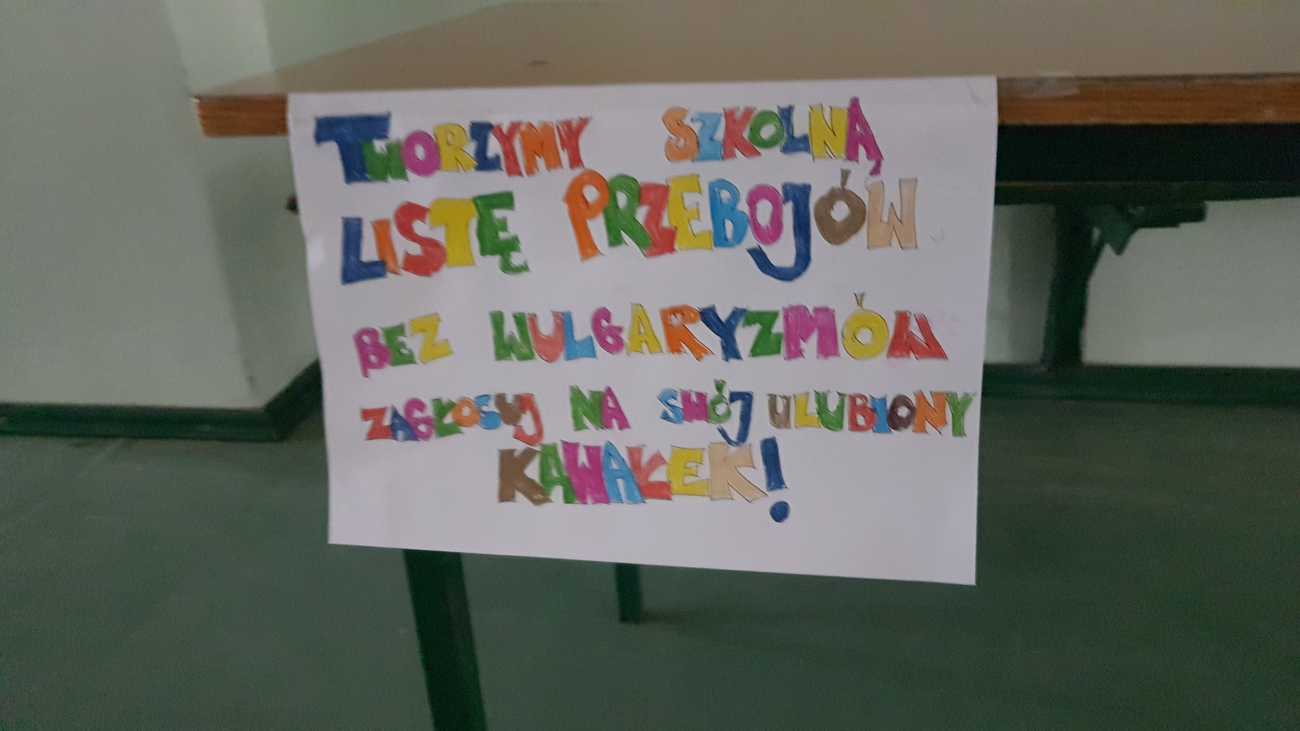 TWORZYMY SZKOLNĄ
LISTĘ PRZEBOJÓW
BEZ WULGARYZMÓW
ZAGŁOSUJ NA SWÓJ ULUBIONY
KAWAŁEK!